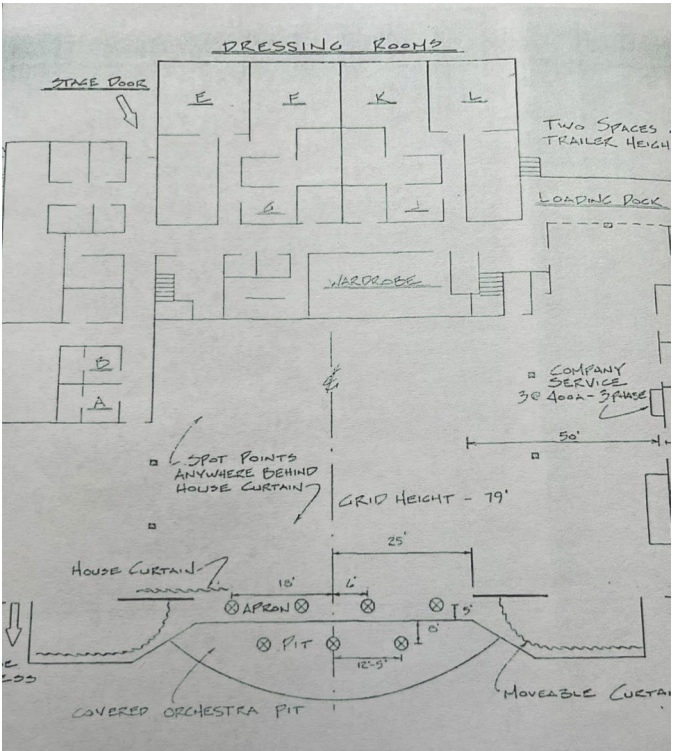 DRESSING ROOMS
STAGE DOOR
E
F
K
L
TWO SPACES
TRAILER HEIGH
LOADING DOCK
G
J
WARDROBE
B
A
COMPANY
SERVICE
3@ 400A - 3 PHASE
50'
SPOT POINTS
ANYWHERE BEHIND
HOUSE CURTAIN
GRID HEIGHT - 79'
25'
HOUSE CURTAIN
18'
6'
APRON
5'
8'
PIT
12'-5"
ESS
MOVEABLE CURTAI
COVERED ORCHESTRA PIT